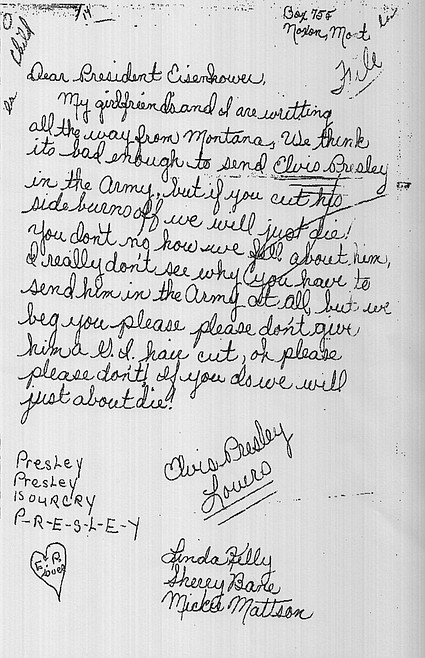 Box 755
Noxon, Mont
Child
File
Dear President Eisenhower,
My girlfriend's and I are writting
all the way from Montana, We think
its bad enough to send Elvis Presley
in the Army, but if you cut his
side burns off we will just die!
You don't no how we fell about him,
I really don't see why you have to
send him in the Army at all, but we
beg you please please don't give
him a G.I. hair cut, oh please
please don't! If you do we will
just about die!
Elvis Presley
Lovers
Presley
Presley
IS OUR CRY
P-R-E-S-L-E-Y
Linda Kelly
Sherry Bane
Mickie Mattson